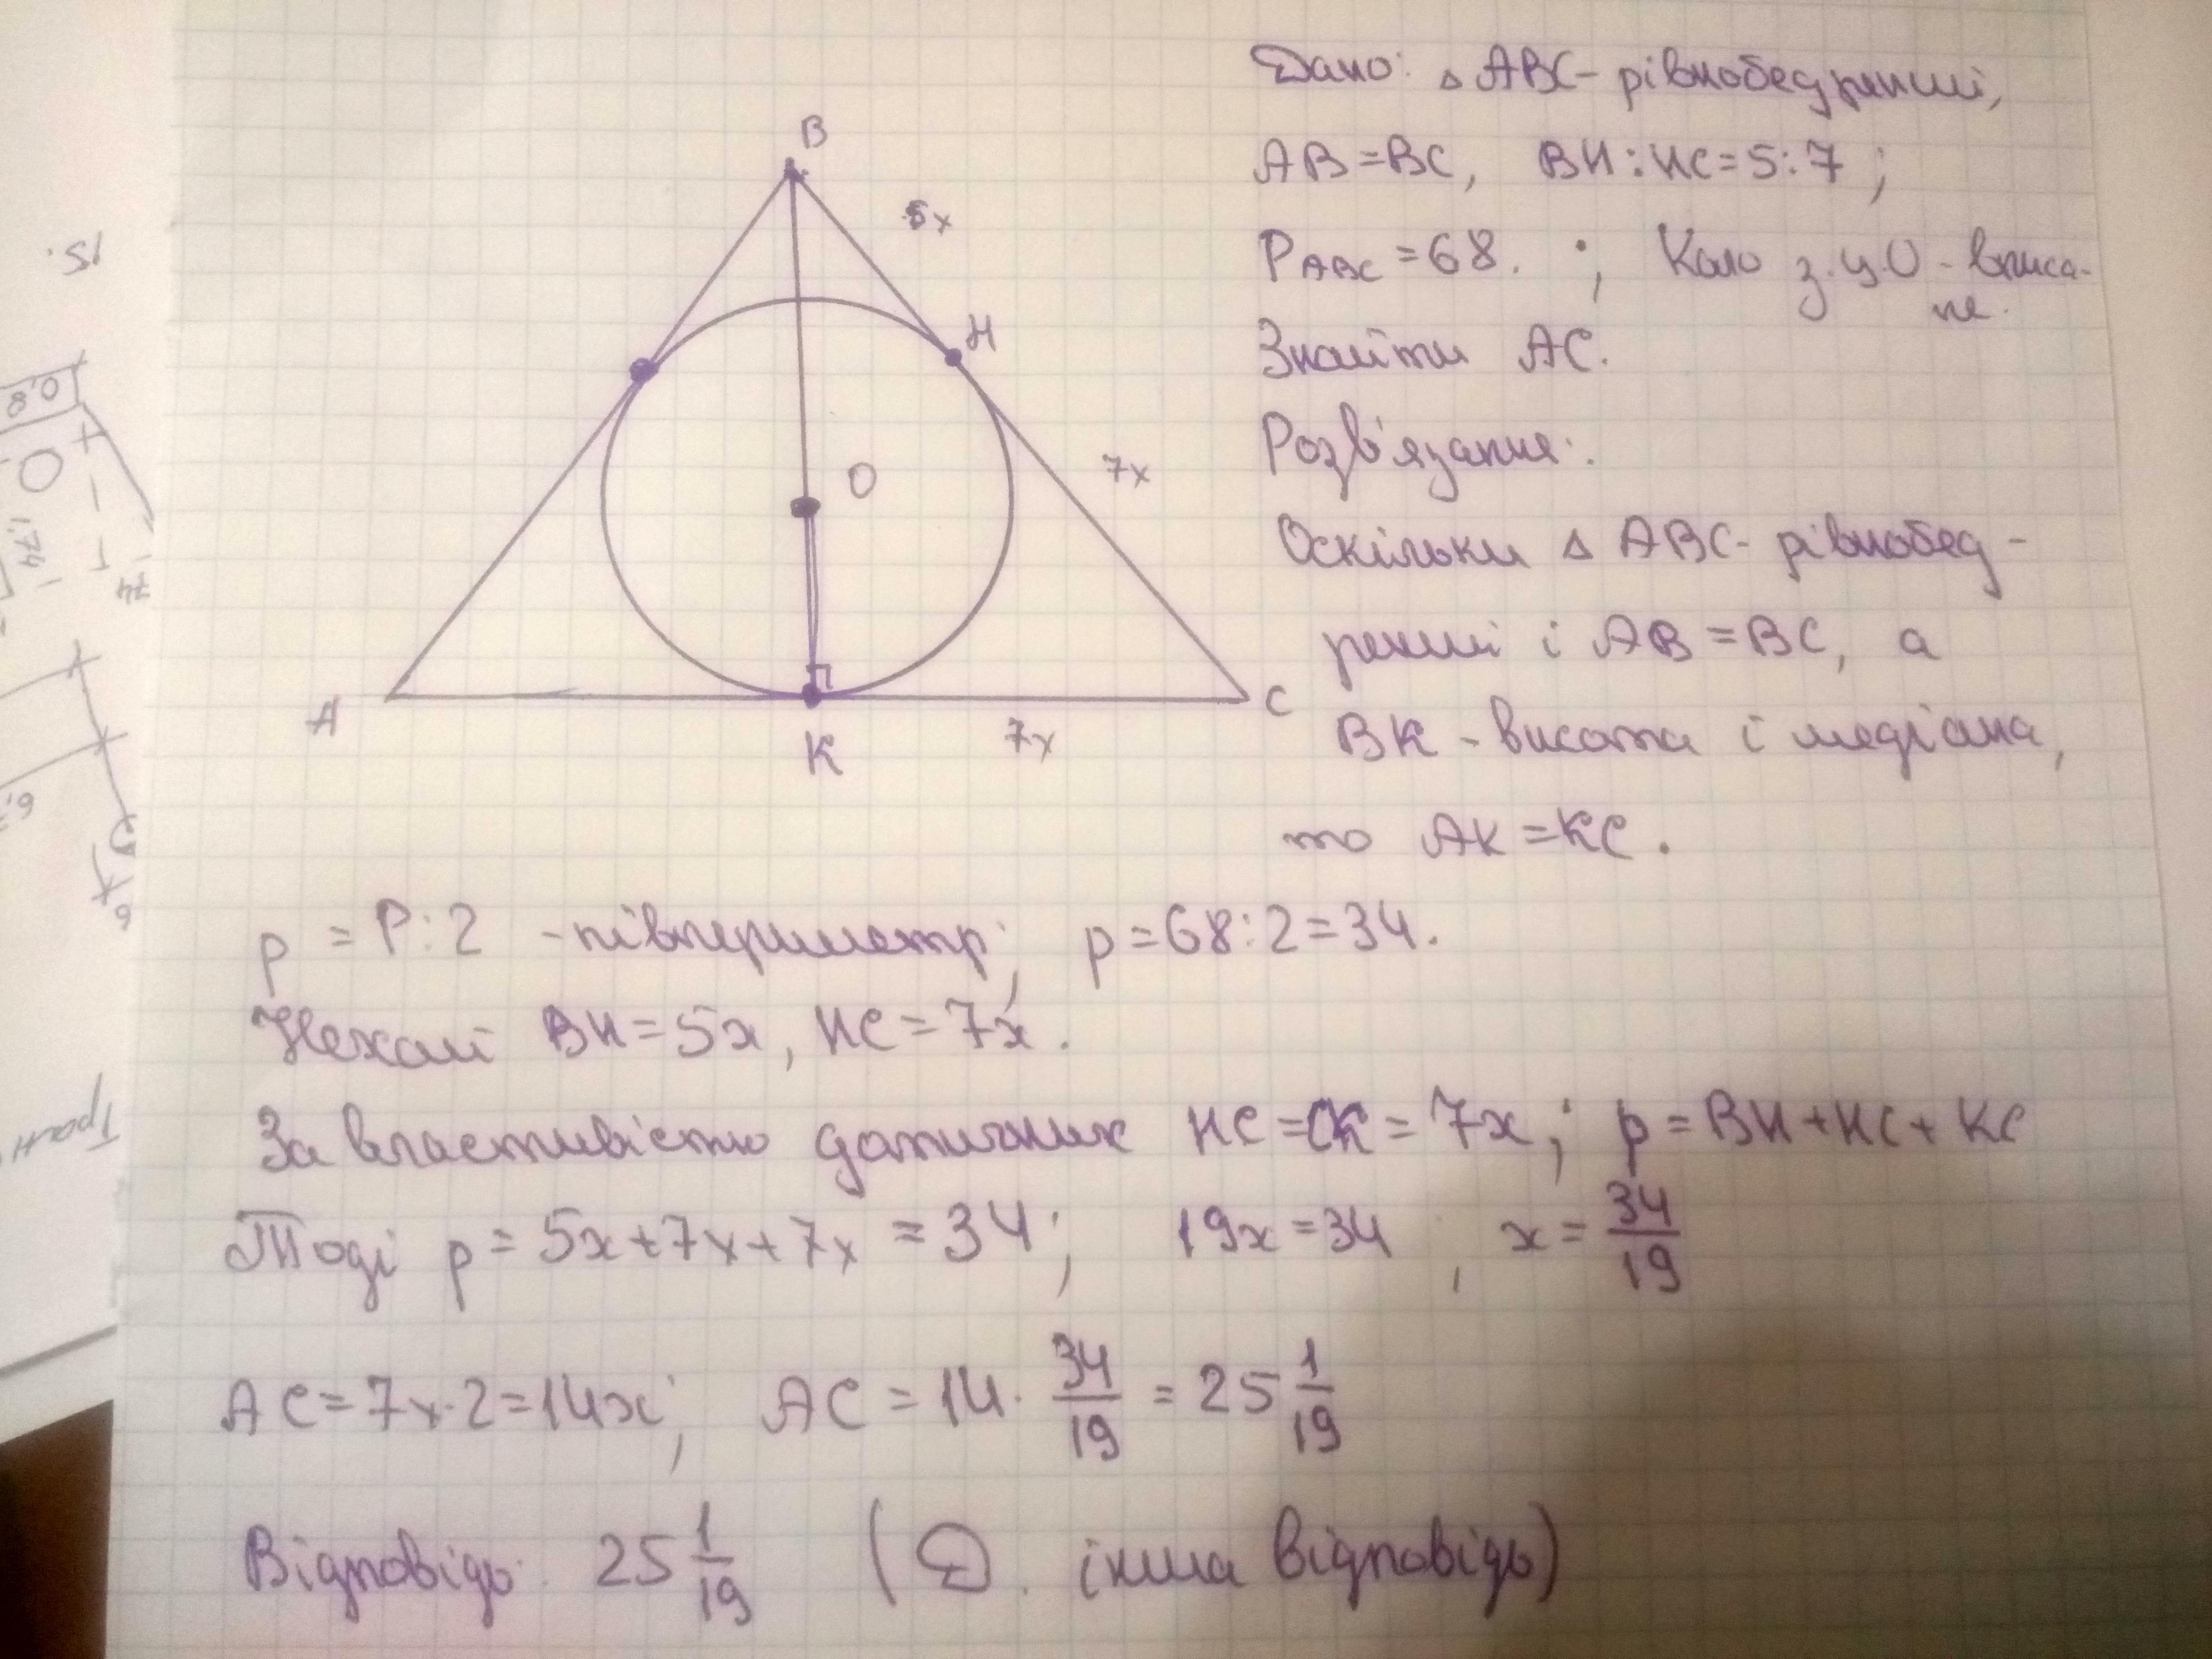 B
5x
H
O
7x
A
K
7x
C
Дано: △ ABC - рівнобедрений,
AB = BC, BH : HC = 5 : 7 ;
P ABC = 68. ; Коло з ц. O - вписа-
не.
Знайти AC.
Розв'язання:
Оскільки △ ABC - рівнобед-
рений і AB = BC, а
BK - висота і медіана,
то AK = KC.
p = P : 2 - півпериметр; p = 68 : 2 = 34.
Нехай BH = 5x, HC = 7x.
За властивістю дотичних HC = CK = 7x; p = BH + HC + KC
Тоді p = 5x + 7x + 7x = 34; 19x = 34, x = 34/19
AC = 7x · 2 = 14x; AC = 14 · 34/19 = 25 1/19
Відповідь: 25 1/19 (Д. інша відповідь)
15.
0,8
1,74
74
6
Тран